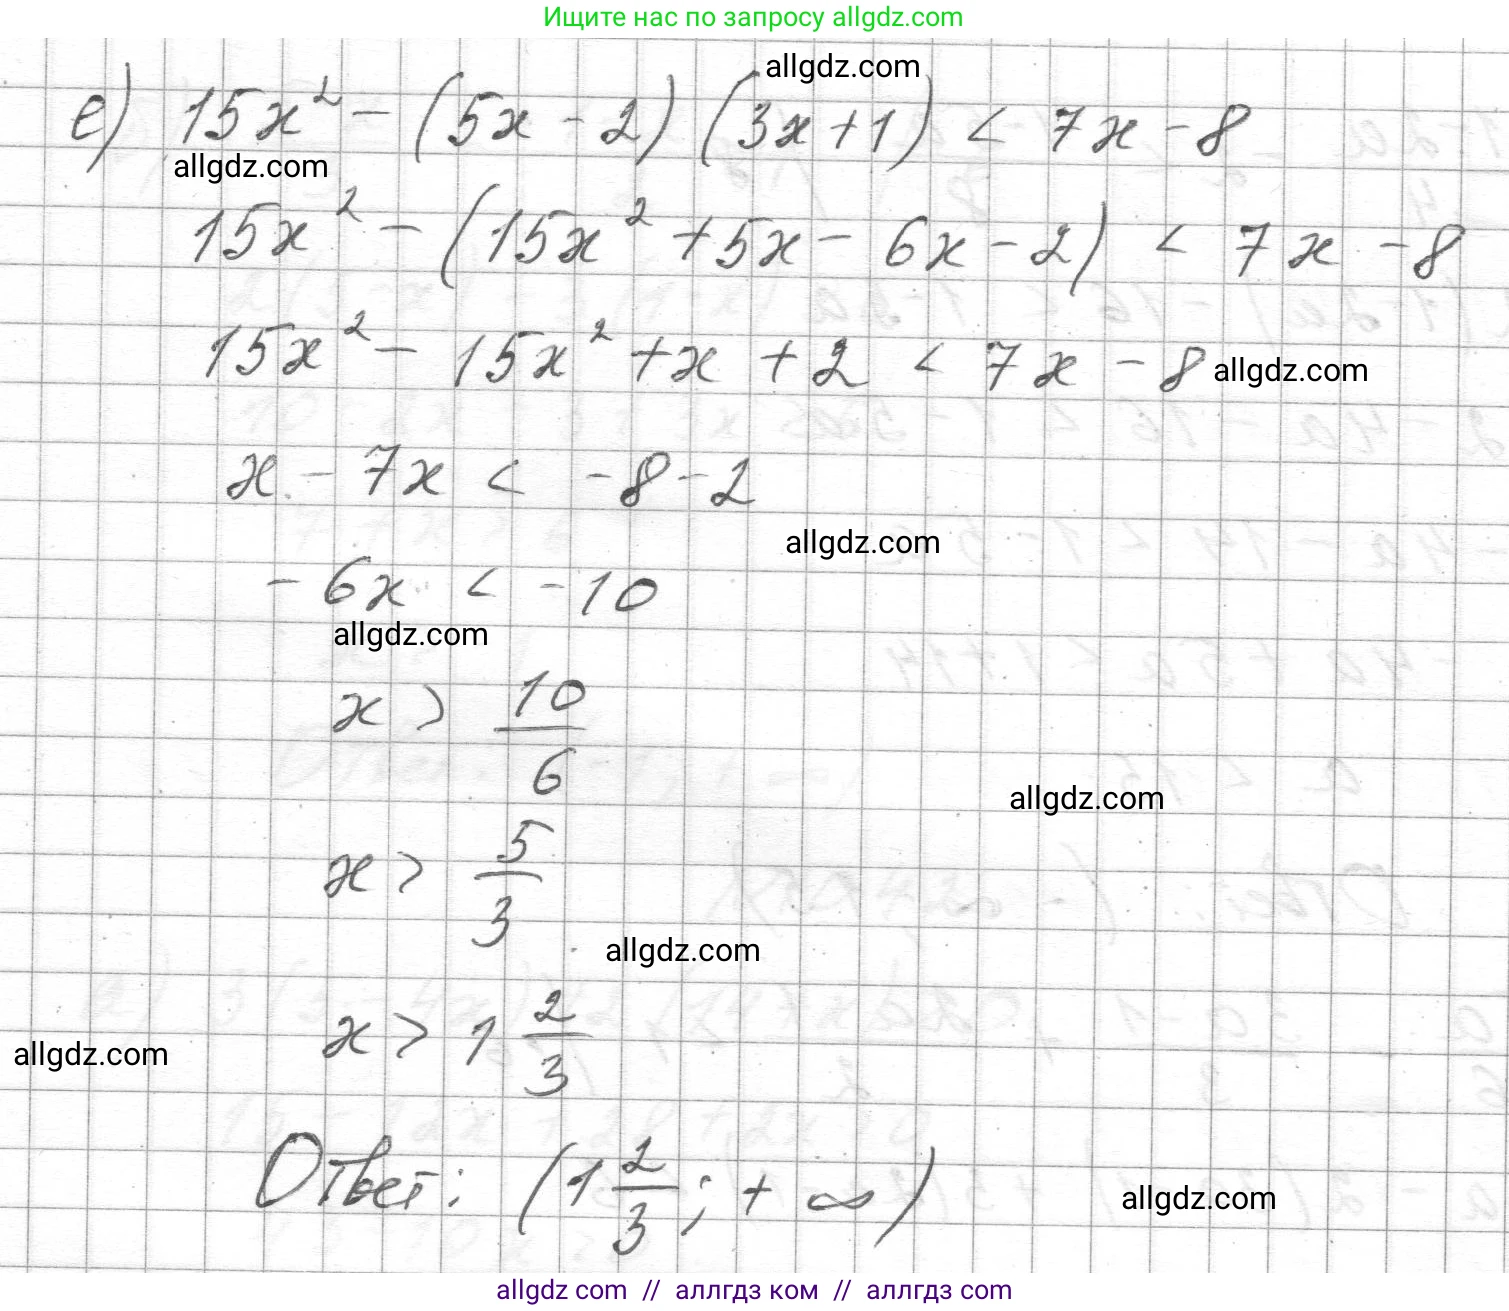 Ищите нас по запросу allgdz.com
allgdz.com
е) 15x² - (5x - 2) (3x + 1) < 7x - 8
allgdz.com
15x² - (15x² + 5x - 6x - 2) < 7x - 8
15x² - 15x² + x + 2 < 7x - 8 allgdz.com
x - 7x < -8 - 2
allgdz.com
- 6x < -10
allgdz.com
x > 10/6
allgdz.com
x > 5/3
allgdz.com
x > 1 2/3
allgdz.com
Ответ: (1 2/3; + ∞)
allgdz.com
allgdz com // аллгдз ком // аллгдз com